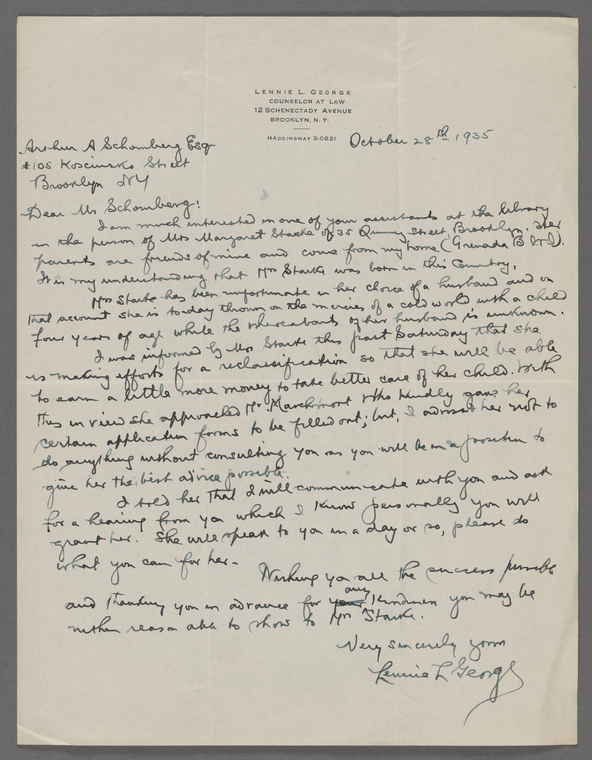 LENNIE L. GEORGE
COUNSELOR AT LAW
12 SCHENECTADY AVENUE
BROOKLYN, N. Y.
HADDINGWAY 3-0821
October 28th 1935
Arthur A Schomberg Esq
#105 Kosciusko Street
Brooklyn NY
Dear Mr Schomberg:
I am much interested in one of your assistants at the library
in the person of Mrs Margaret Starke of 35 Quincy Street, Brooklyn. Her
parents are friends of mine and come from my home (Grenada B.W.I).
It is my understanding that Mrs Starke was born in this Country.
Mrs Starke has been unfortunate in her choice of a husband and on
that account she is to-day thrown on the mercies of a cold world with a child
four years of age while the whereabouts of her husband is unknown.
I was informed by Mrs Starke this past Saturday that she
is making efforts for a reclassification so that she will be able
to earn a little more money to take better care of her child. With
this in view she approached Mr. Marchmont who kindly gave her
certain application forms to be filled out; but, I advised her not to
do anything without consulting you as you will be in a position to
give her the best advice possible.
I told her that I will communicate with you and ask
for a hearing from you which I know personally you will
grant her. She will speak to you in a day or so, please do
what you can for her.
Wishing you all the success possible
and thanking you in advance for any kindness you may be
within reason able to show to Mrs Starke.
Very sincerely yours
Lennie L George